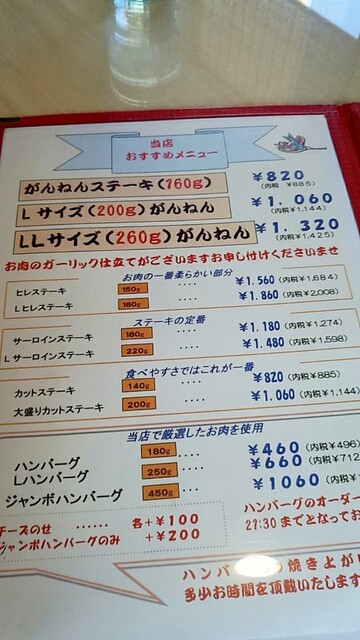 当店
おすすめメニュー
がんねんステーキ(160g) ¥820
(内税 ¥885)
Lサイズ(200g)がんねん ¥1.060
(内税¥1,144)
LLサイズ(260g)がんねん ¥1.320
(内税¥1,425)
お肉のガーリック仕立てがございますお申し付けくださいませ
お肉の一番柔らかい部分
ヒレステーキ 150g ···· ¥1.560(内税¥1,684)
Lヒレステーキ 180g ···· ¥1.860(内税¥2,008)
ステーキの定番
サーロインステーキ 180g ···· ¥1.180(内税¥1,274)
Lサーロインステーキ 220g ···· ¥1.480(内税¥1,598)
食べやすさではこれが一番
カットステーキ 140g ···· ¥820(内税¥885)
大盛りカットステーキ 200g ···· ¥1.060(内税¥1,144)
当店で厳選したお肉を使用
ハンバーグ 180g ···· ¥460(内税¥496)
Lハンバーグ 250g ···· ¥660(内税¥712
ジャンボハンバーグ 450g ···· ¥1060(内税¥1
チーズのせ ······ 各+¥100
ジャンボハンバーグのみ +¥200
ハンバーグのオーダー
21:30までとなってお
ハンバ の焼き上が
多少お時間を頂戴いたします